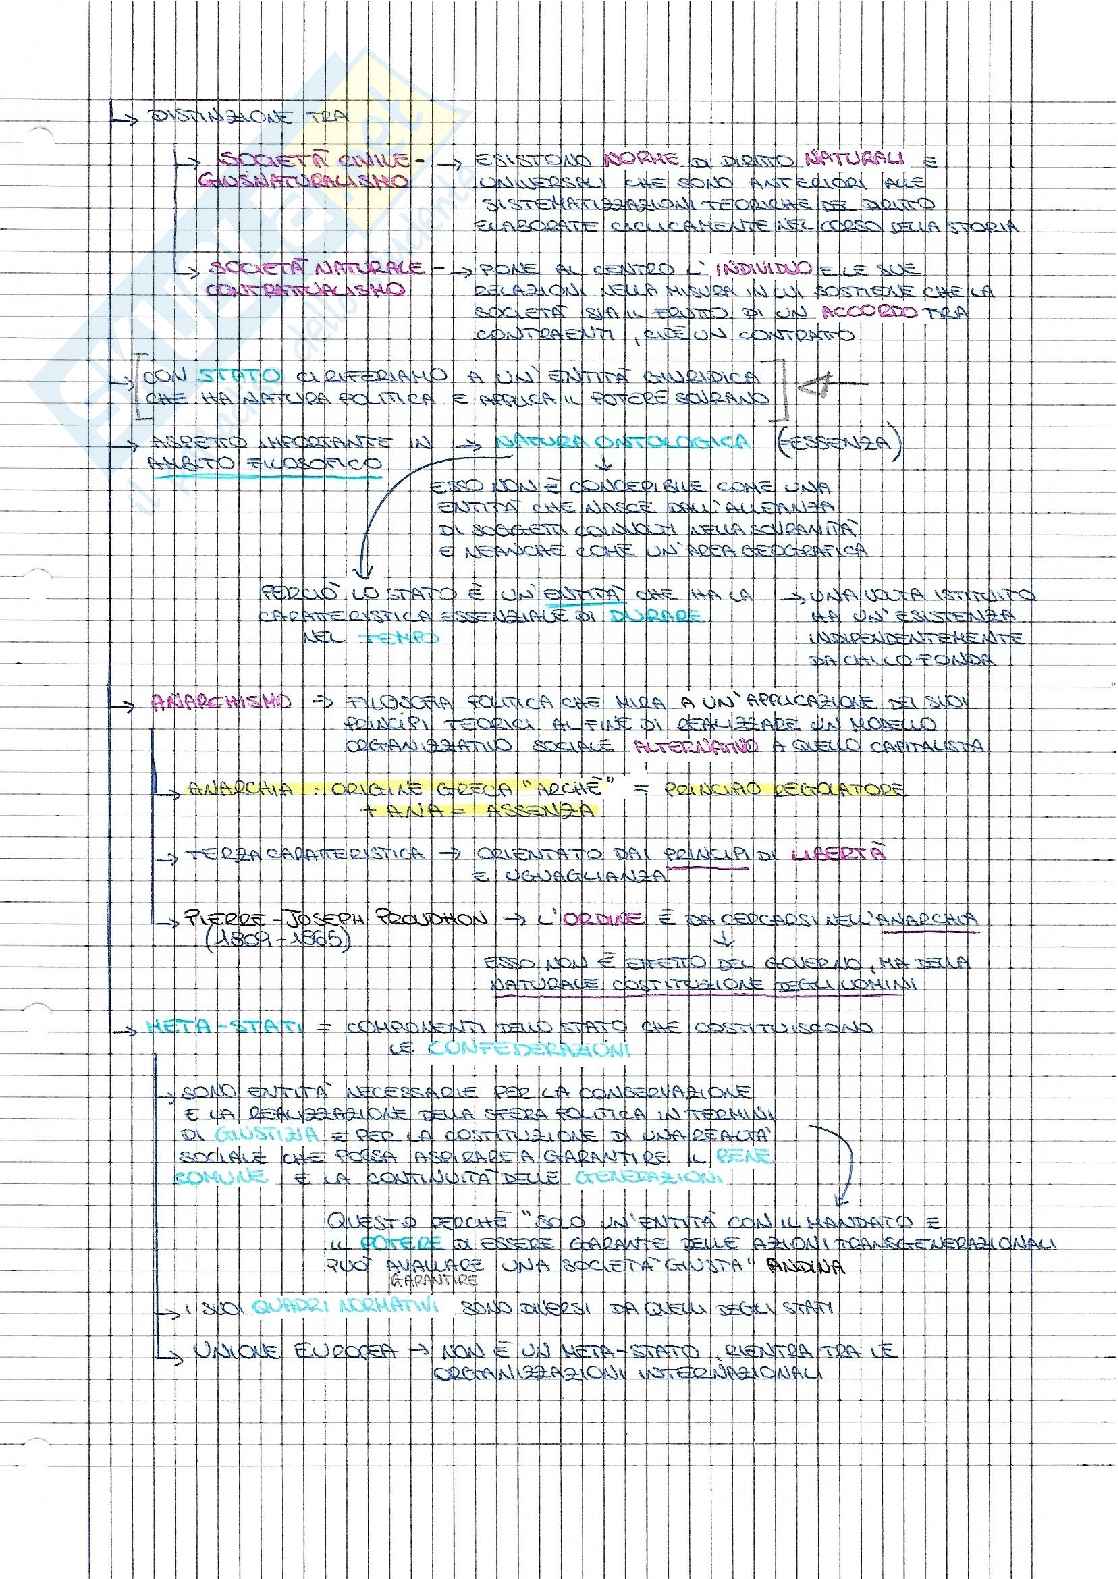 → DISTINZIONE TRA
→ SOCIETÀ CIVILE - → ESISTONO NORME DI DIRITTO NATURALI E
GIUSNATURALISMO UNIVERSALI CHE SONO ANTERIORI ALLE
SISTEMATIZZAZIONI TEORICHE DEL DIRITTO
ELABORATE CICLICAMENTE NEL CORSO DELLA STORIA
→ SOCIETÀ NATURALE - → PONE AL CENTRO L'INDIVIDUO E LE SUE
CONTRATTUALISMO RELAZIONI NELLA MISURA IN CUI SOSTIENE CHE LA
SOCIETÀ SIA IL FRUTTO DI UN ACCORDO TRA
CONTRAENTI, CIOÈ UN CONTRATTO
→ [CON STATO CI RIFERIAMO A UN'ENTITÀ GIURIDICA
CHE HA NATURA POLITICA E APPLICA IL POTERE SOVRANO] ←
→ ASPETTO IMPORTANTE IN → NATURA ONTOLOGICA (ESSENZA)
AMBITO FILOSOFICO ↓
ESSO NON È CONCEPIBILE COME UNA
ENTITÀ CHE NASCE DALL'ALLEANZA
DI SOGGETTI COINVOLTI NELLA SOVRANITÀ
E NEANCHE COME UN'AREA GEOGRAFICA
PERCIÒ LO STATO È UN'ENTITÀ CHE HA LA → UNA VOLTA ISTITUITO
CARATTERISTICA ESSENZIALE DI DURARE HA UN'ESISTENZA
NEL TEMPO INDIPENDENTEMENTE
DA CHI LO FONDA
→ ANARCHISMO → FILOSOFIA POLITICA CHE MIRA A UN'APPLICAZIONE DEI SUOI
PRINCIPI TEORICI AL FINE DI REALIZZARE UN MODELLO
ORGANIZZATIVO SOCIALE ALTERNATIVO A QUELLO CAPITALISTA
→ ANARCHIA : ORIGINE GRECA "ARCHÈ" = PRINCIPIO REGOLATORE
+ ANA = ASSENZA
→ TERZA CARATTERISTICA → ORIENTATO DAI PRINCIPI DI LIBERTÀ
E UGUAGLIANZA
→ PIERRE-JOSEPH PROUDHON → L'ORDINE È DA CERCARSI NELL'ANARCHIA
(1809-1865) ↓
ESSO NON È EFFETTO DEL GOVERNO, MA DELLA
NATURALE COSTITUZIONE DEGLI UOMINI
→ META-STATI = COMPONENTI DELLO STATO CHE COSTITUISCONO
LE CONFEDERAZIONI
→ SONO ENTITÀ NECESSARIE PER LA CONSERVAZIONE
E LA REALIZZAZIONE DELLA SFERA POLITICA IN TERMINI
DI GIUSTIZIA E PER LA COSTITUZIONE DI UNA REALTÀ
SOCIALE CHE POSSA ASPIRARE A GARANTIRE IL BENE
COMUNE E LA CONTINUITÀ DELLE GENERAZIONI
QUESTO PERCHÈ "SOLO UN'ENTITÀ CON IL MANDATO E
IL POTERE DI ESSERE GARANTE DELLE AZIONI TRANSGENERAZIONALI
PUÒ AVALLARE UNA SOCIETÀ GIUSTA" ANDINA
GARANTIRE
→ I SUOI QUADRI NORMATIVI SONO DIVERSI DA QUELLI DEGLI STATI
→ UNIONE EUROPEA → NON È UN META-STATO, RIENTRA TRA LE
ORGANIZZAZIONI INTERNAZIONALI